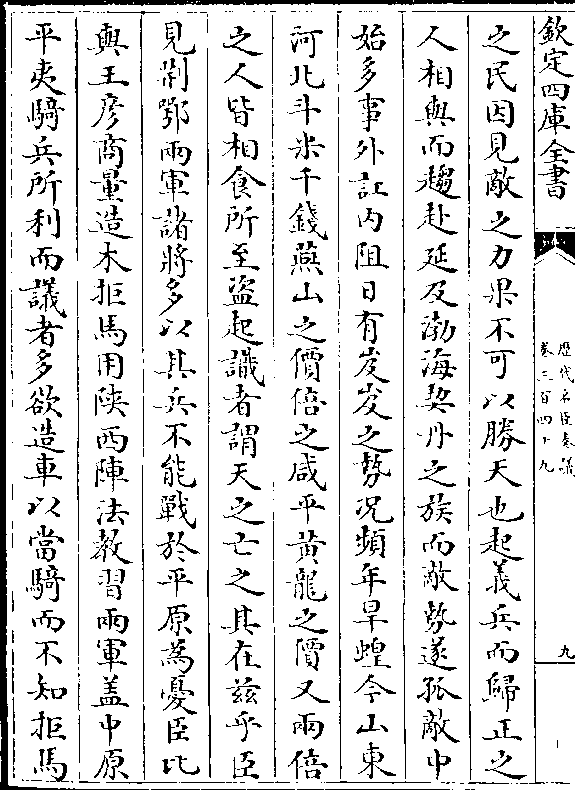 欽定四庫全書
歷代名臣奏議
卷三百四十九
九
之民因見敵之力果不可以勝天也起義兵而歸正之
人相與而趨赴延及渤海契丹之族而敵勢遂孤敵中
始多事外訌内阻日有岌岌之勢况頻年旱蝗今山東
河北斗米千錢燕山之價倍之咸平黄龍之價又兩倍
之人皆相食所至盗起識者謂天之亡之其在兹乎臣
見荆鄂兩軍諸將多以其兵不能戰於平原為憂臣比
與王彦商量造木拒馬用陜西陣法教習兩軍盖中原
平夷騎兵所利而議者多欲造車以當騎而不知拒馬